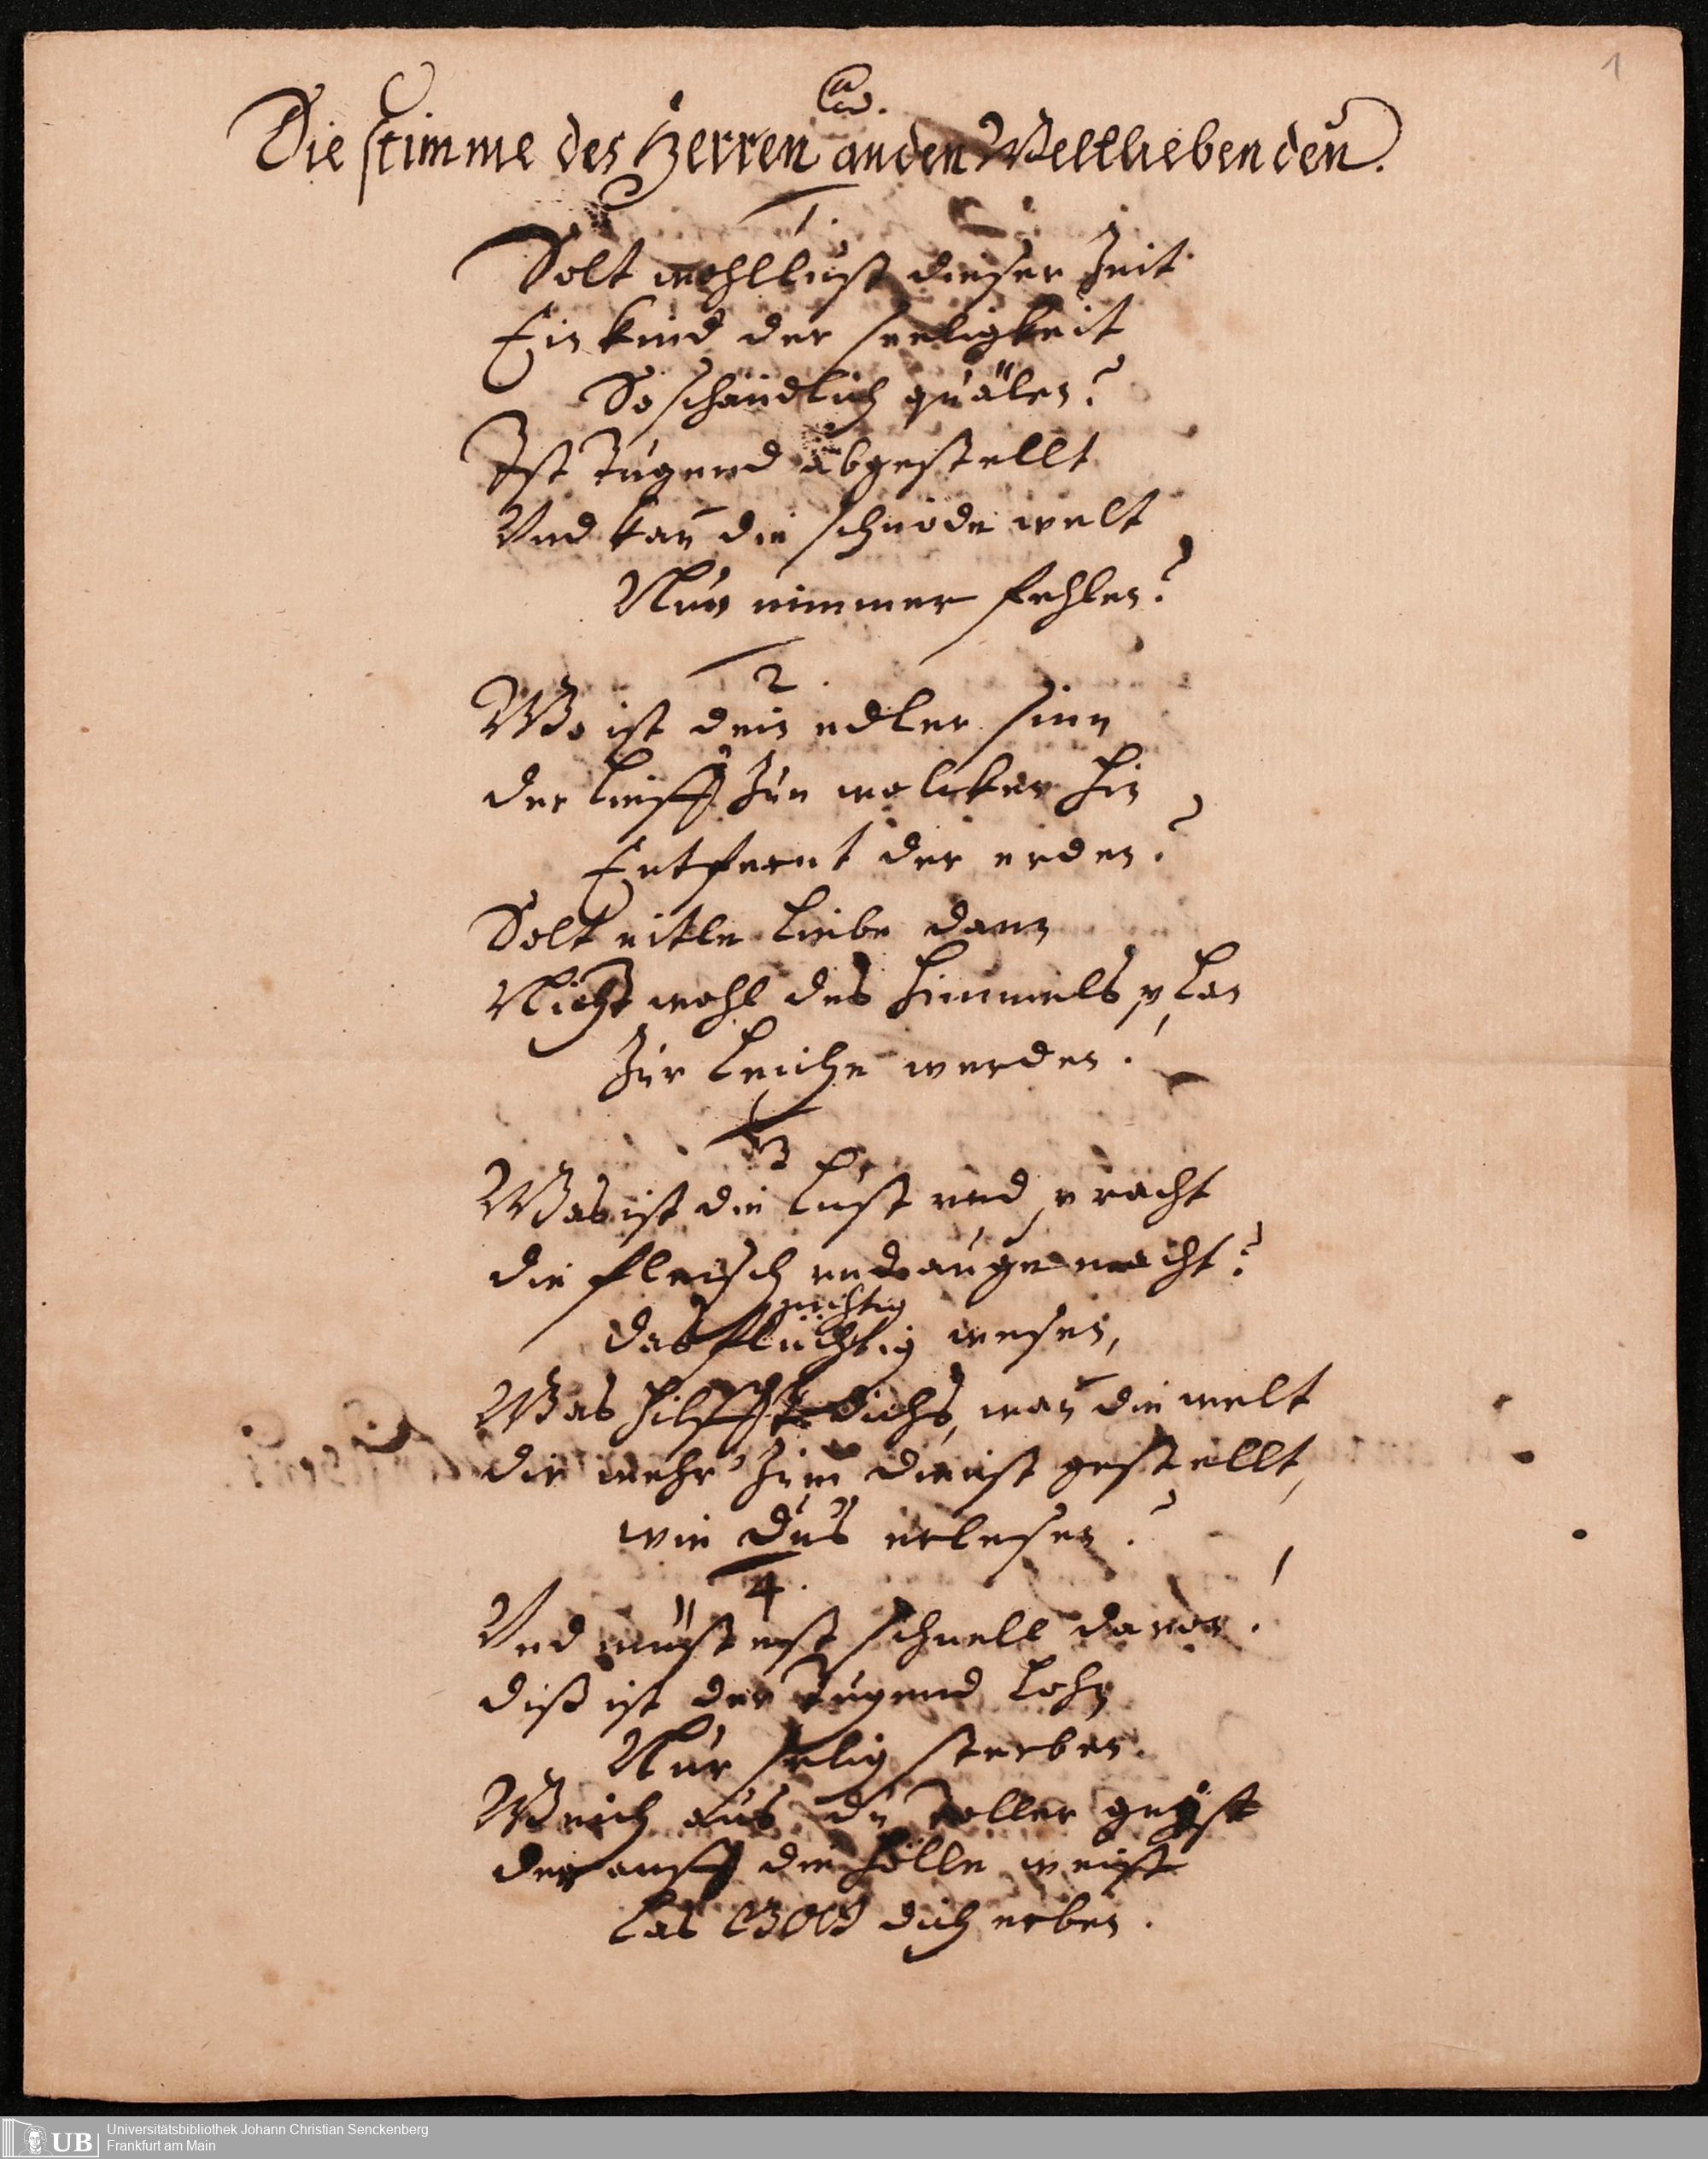 1
Die stimme des Herren an den Weltliebenden.
1.
Solt wohllust dieser Zeit
Ein kind der seeligkeit
So schändlich quälen?
Ist Tugend abgestellt
Vnd kan̄ die schnöde welt
Nun nimmer fehlen?
2.
Wo ist dein edler sinn
der lieff zun wolcken hin
Entfernt der erden?
Solt eitle liebe dann
Nicht wohl des himmels plan
Zur leiche werden!
3
Was ist die lust und pracht
die fleisch und auge macht?
nichtig
das flüchtig wesen,
Was hilfft dichs, wan̄ die welt
dir mehr zum dienst gestellt,
wie du's erlesen?
4.
Vnd müstest schnell davon!
diß ist der Tugend lohn
Nur selig sterben.
Weich aus du toller geyst
der auff die hölle weist
las GOtt dich erben.
UB
Universitätsbibliothek Johann Christian Senckenberg
Frankfurt am Main